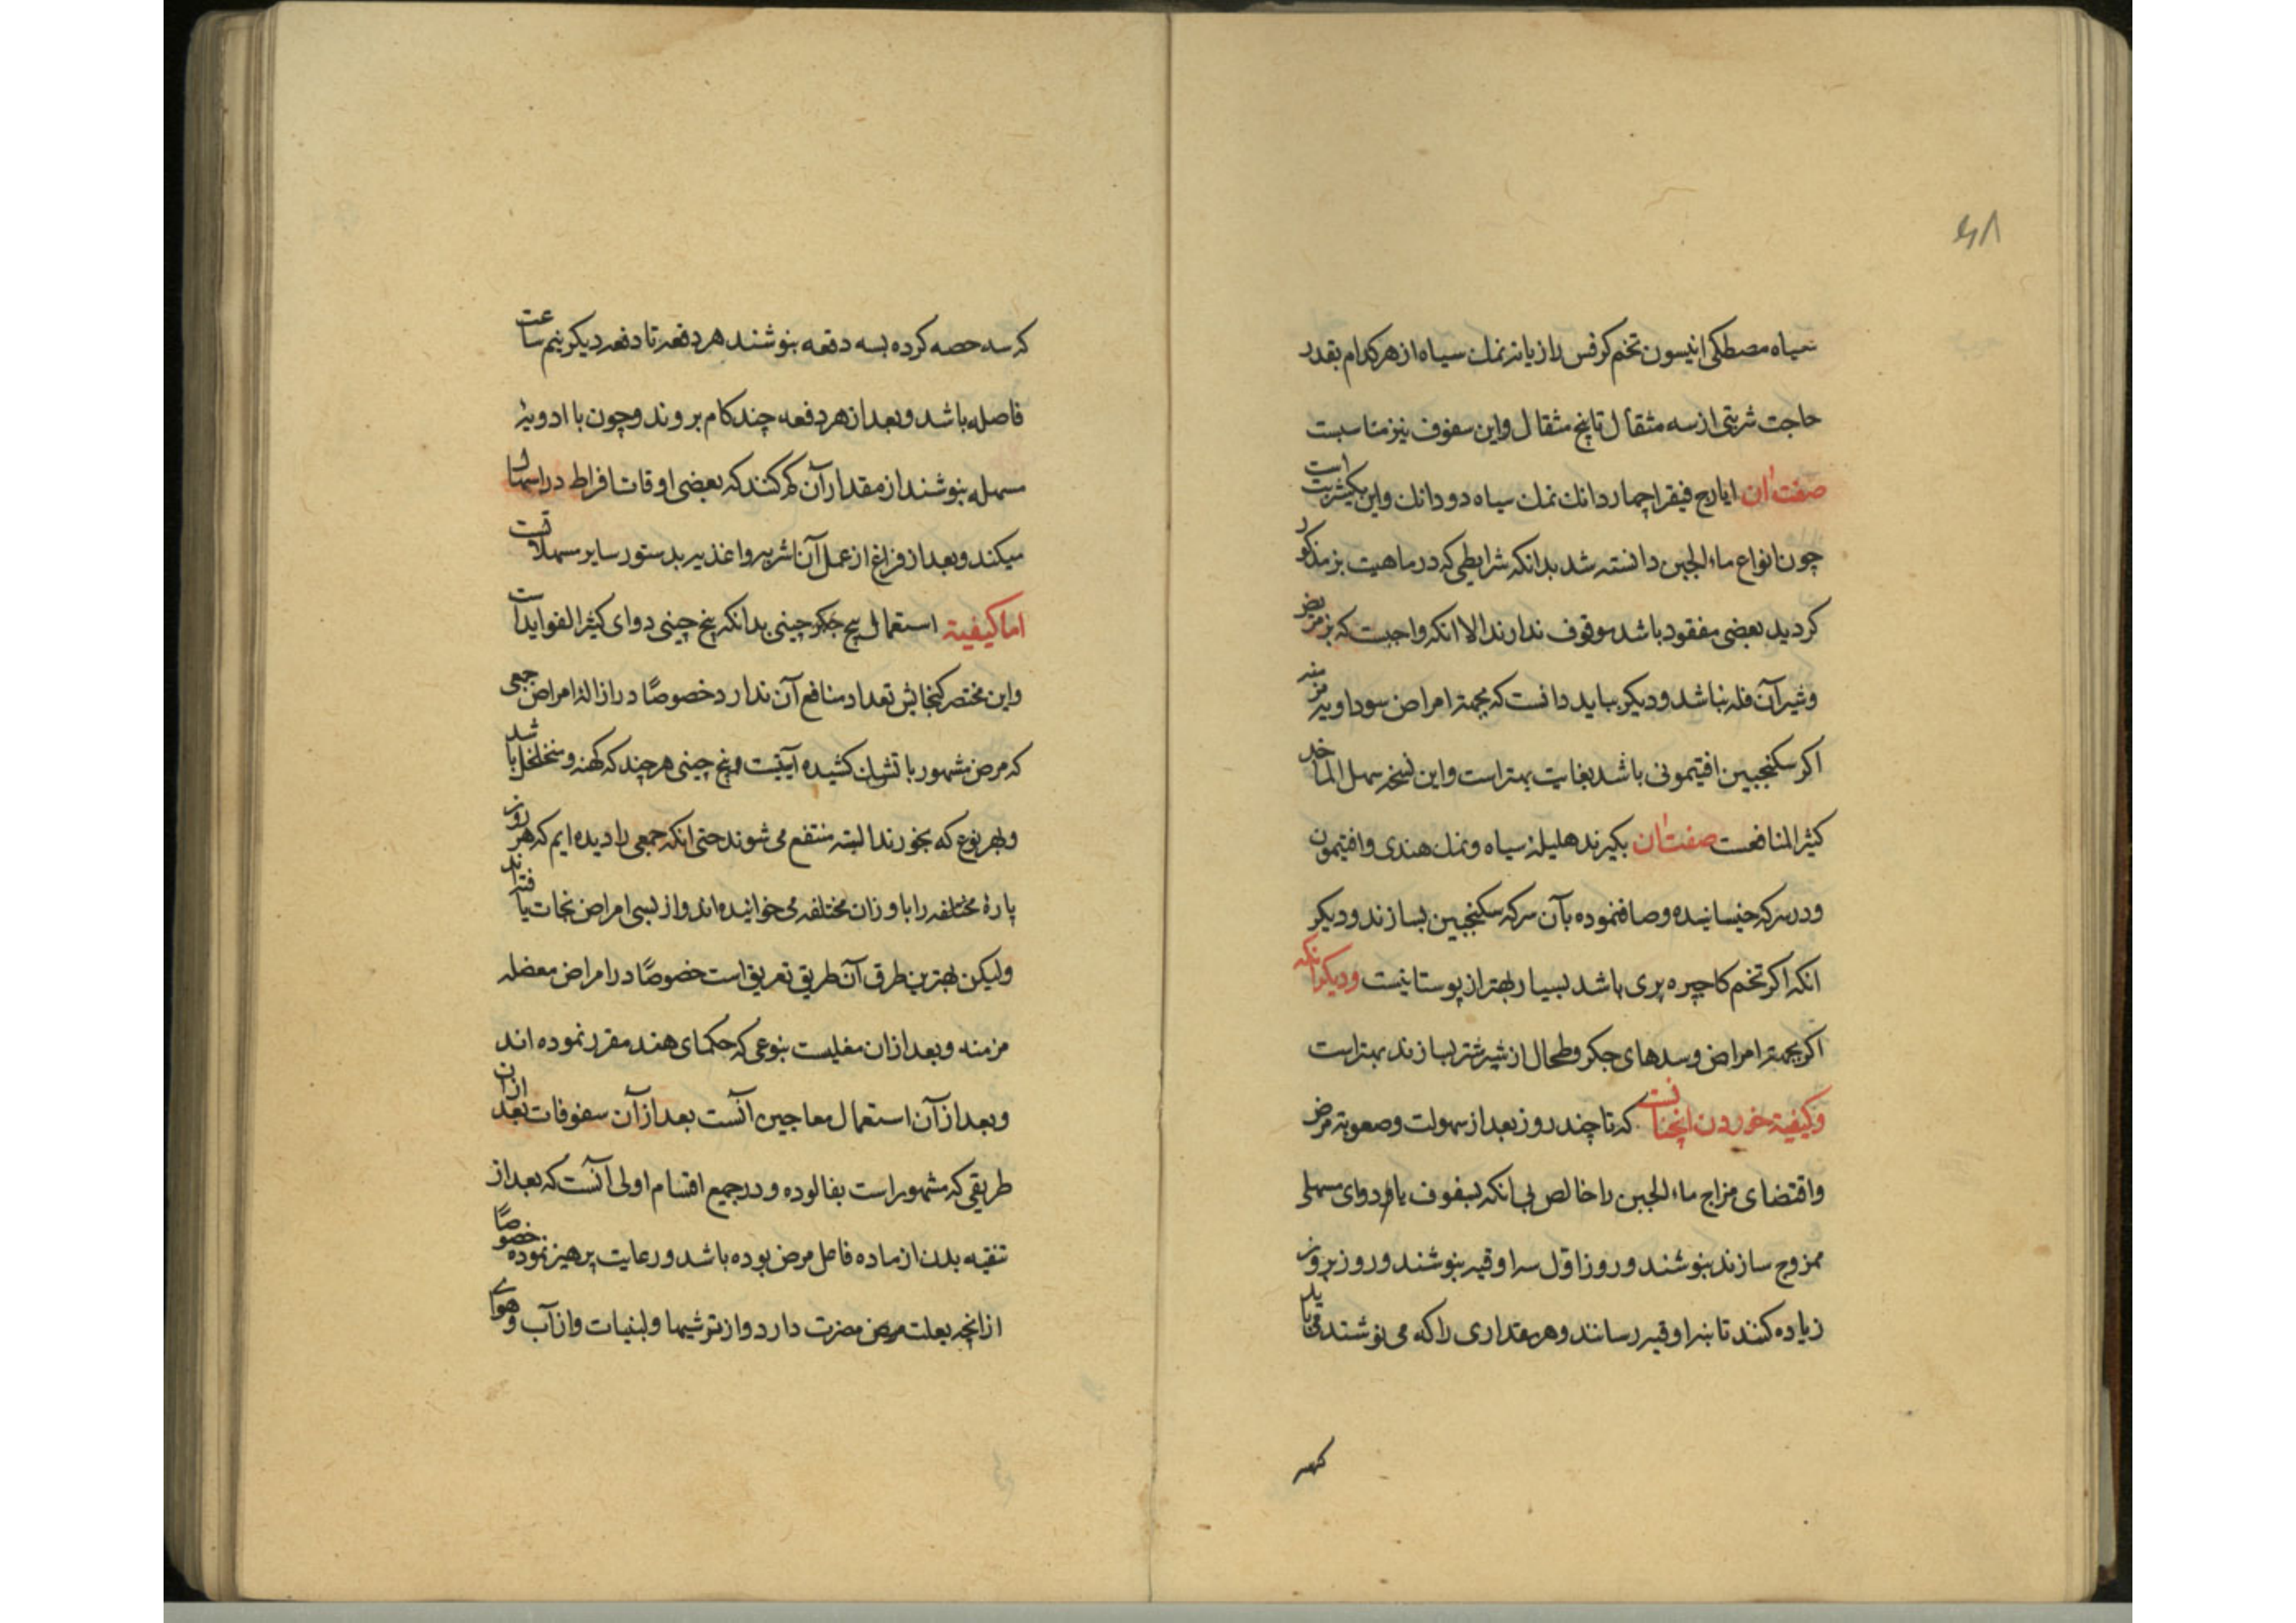 ۴۸
سیاه مصطکی انیسون تخم کرفس رازیانه نمک سیاه از هر کدام بقدر
حاجت شربتی از سه مثقال تا پنج مثقال و این سفوف نیز مناسبست
صفت آن ایارج فیقرا چهار دانك نمك سیاه دو دانك و این یکشربت است
چون انواع ماء الجبن دانسته شد بدانکه شرایطی که در ماهیت بز مذکور
کردید بعضی مفقود باشد موقوف ندارند الا انکه واجبست که بز مریض
و شیر آن فله نباشد و دیکر بباید دانست که بجهة امراض سوداویه مزمنه
اکر سکنجبین افتیمونی باشد بغایت بهتر است و این نسخه سهل الماخد
کثیر المنافعست صفت آن بکیرند هلیله سیاه و نمك هندی و افتیمون
و در سرکه خیسانیده و صاف نموده بآن سرکه سکنجبین بسازند و دیکر
انکه اکر تخم کاجیره بری باشد بسیار بهتر از بوستانیست و دیکر انکه
اکر بجهة امراض و سدهای جکر و طحال از شیر شتر بسازند بهتر است
و کیفیة خوردن انچنانست که تا چند روز بعد از سهولت و صعوبة مرض
و اقتضای مزاج ماء الجبن را خالص بی انکه بسفوف یا دوای مسهلی
ممزوج سازند بنوشند و روز اول سه اوقیه بنوشند و روز بروز
زیاده کنند تا بنه اوقیه رسانند و هر مقداری را که می نوشند می باید
که سه
که سه حصه کرده بسه دفعه بنوشند هر دفعه تا دفعه دیکر نیم ساعت
فاصله باشد و بعد از هر دفعه چند کام بروند و چون با ادویۀ
مسهله بنوشند از مقدار آن کم کنند که بعضی اوقات افراط در اسهال
میکند و بعد از فراغ از عمل آن اشربه و اغذیه بدستور سایر مسهلاتست
اما کیفیة استعمال بیخ جکر چینی بدانکه بیخ چینی دوای کثیر الفوایدست
و این مختصر کنجایش تعداد منافع آن ندارد خصوصًا در ازالۀ امراض جمعی
که مرض مشهور با تشان کشیده آیتیست و بیخ چینی هر چند که کهنه و متخلخل باشد
و بهر نوع که بخورند البته منتفع می شوند حتی انکه جمعی را دیده ایم که هر روز
پارۀ مختلفه را باوزان مختلفه می خوانیده اند و از بسی امراض نجات یافته اند
و لیکن بهترین طرق آن طریق تعریق است خصوصًا در امراض معضله
مزمنه و بعد از ان مغلیست بنوعی که حکمای هند مقرر نموده اند
و بعد از آن استعمال معاجین آنست بعد از آن سفوفات بعد از ان
طریقی که مشهور است بفالوده و در جمیع اقسام اولی آنست که بعد از
تنقیه بدن از ماده فاعل مرض بوده باشد و رعایت پرهیز نموده خصوصًا
از انچه بعلت مرض مضرت دارد و از ترشیها و لبنیات و از آب و هوای